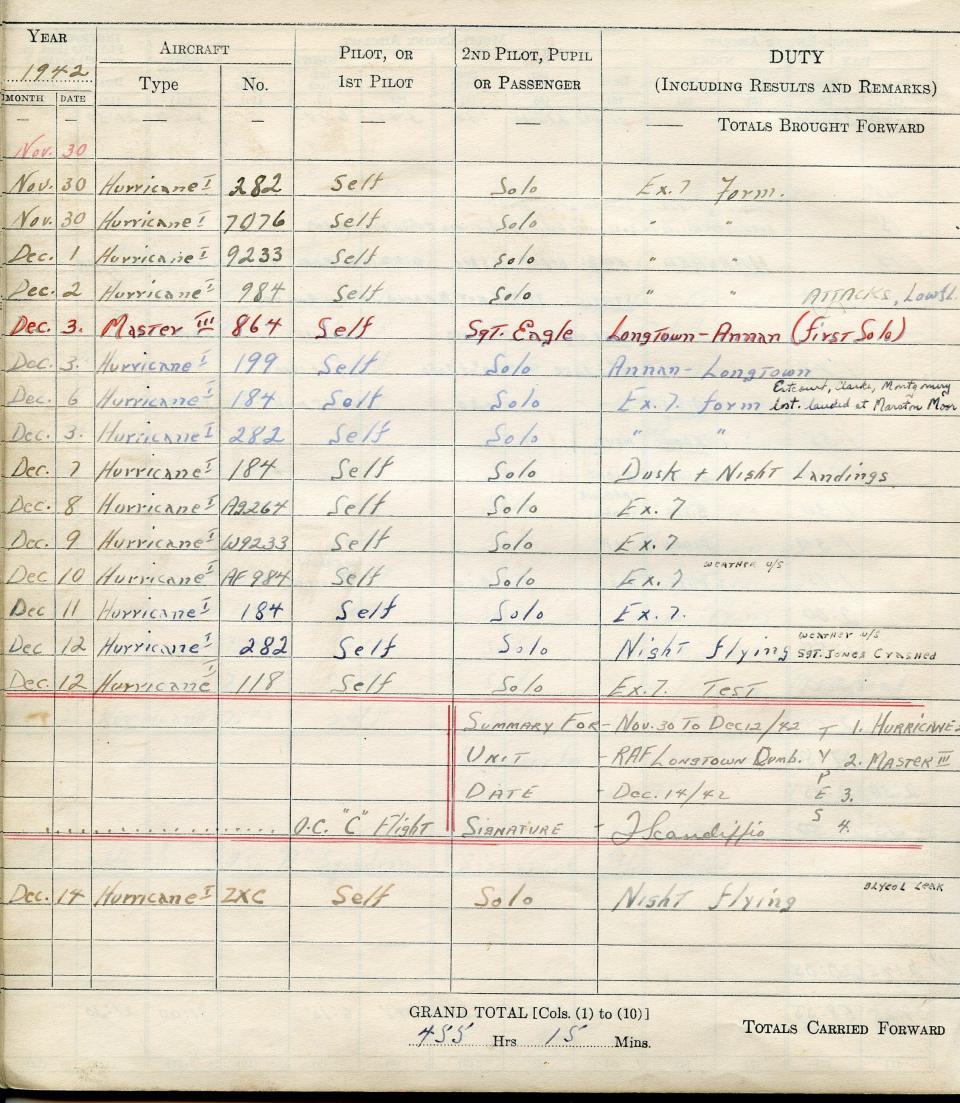 YEAR AIRCRAFT PILOT, OR 2ND PILOT, PUPIL DUTY
1942 Type No. 1ST PILOT OR PASSENGER (INCLUDING RESULTS AND REMARKS)
MONTH DATE
— — — — — — — TOTALS BROUGHT FORWARD
Nov. 30
Nov. 30 Hurricane I 282 Self Solo Ex. 7 Form.
Nov. 30 Hurricane I 7076 Self Solo " "
Dec. 1 Hurricane I 9233 Self Solo " "
Dec. 2 Hurricane I 984 Self Solo " " ATTACKS, Lowfl.
Dec. 3. Master III 864 Self Sgt. Eagle Longtown-Annan (first Solo)
Dec. 3. Hurricane I 199 Self Solo Annan-Longtown
Dec. 6 Hurricane I 184 Self Solo Ex. 7. form Estcourt, Clarke, Montgomery
lost. landed at Marston Moor
Dec. 3. Hurricane I 282 Self Solo " "
Dec. 7 Hurricane I 184 Self Solo Dusk + Night Landings
Dec. 8 Hurricane I AG264 Self Solo Ex. 7
Dec. 9 Hurricane I W9233 Self Solo Ex. 7
Dec 10 Hurricane I AF984 Self Solo Ex. 7 WEATHER U/S
Dec 11 Hurricane I 184 Self Solo Ex. 7.
Dec 12 Hurricane I 282 Self Solo Night flying WEATHER U/S
SGT. JONES Crashed
Dec. 12 Hurricane I 118 Self Solo Ex. 7. Test
SUMMARY FOR- Nov. 30 To Dec 12/42 T 1. HURRICANE
UNIT - RAF LONGTOWN Cumb. Y 2. MASTER III
P
DATE - Dec. 14/42 E 3.
O.C. "C" Flight SIGNATURE - J Scandiffio S 4.
Dec. 14 Hurricane I ZXC Self Solo Night flying GLYCOL LEAK
GRAND TOTAL [Cols. (1) to (10)]
455 Hrs 15 Mins. TOTALS CARRIED FORWARD